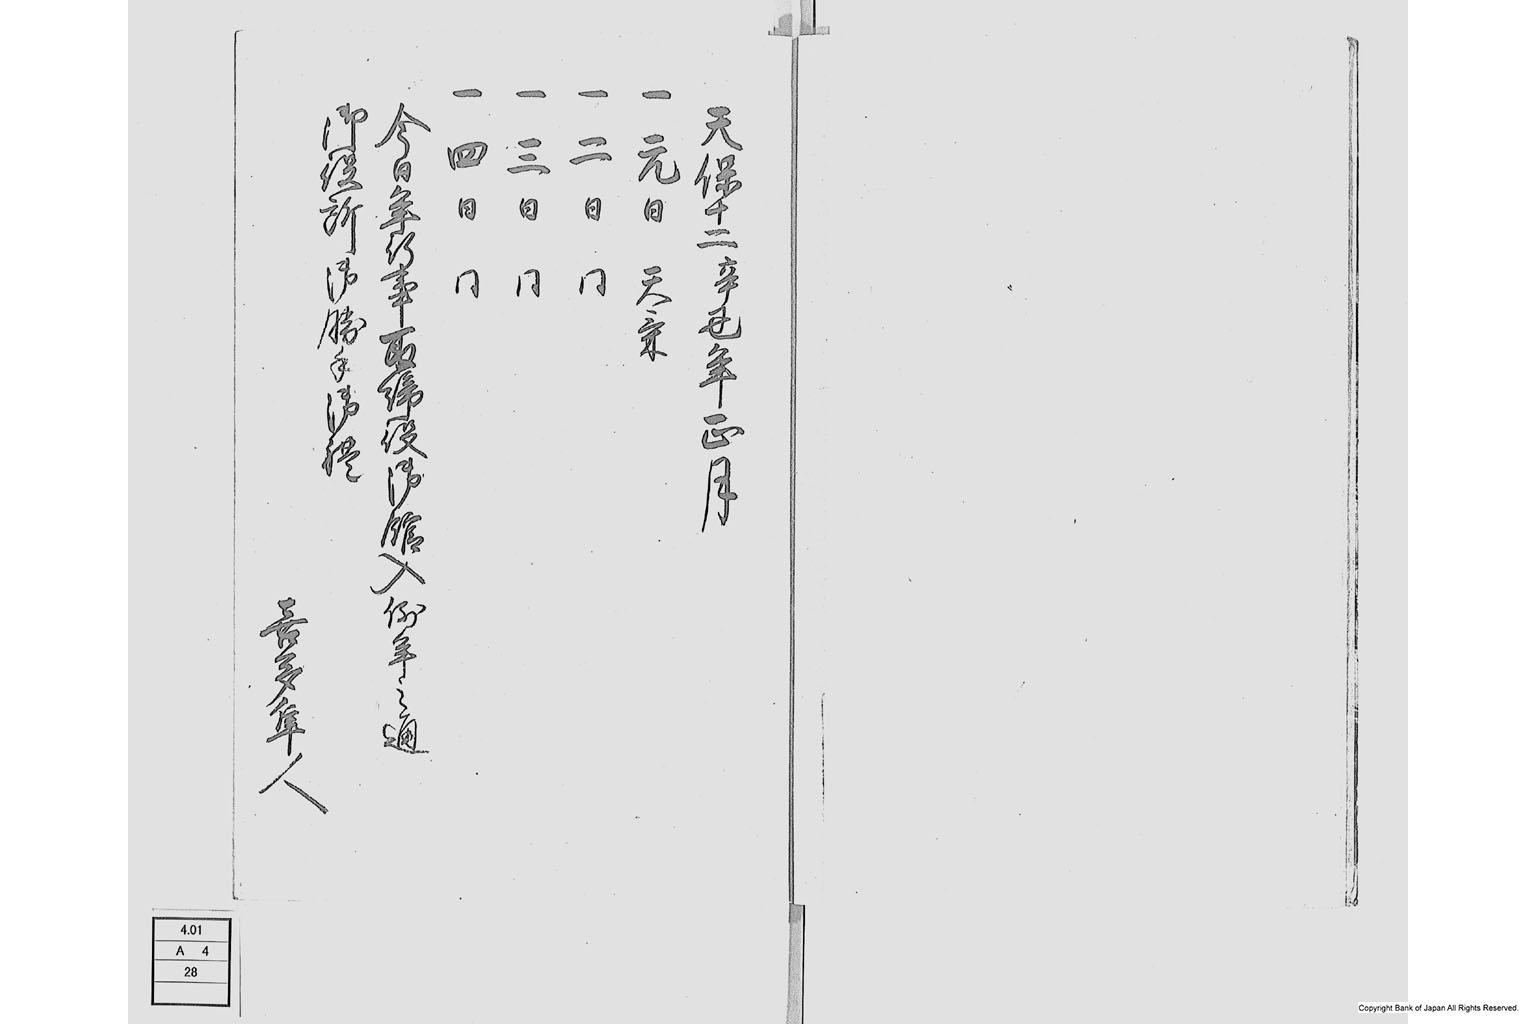 天保十二辛丑年正月
一元日 天気
一二日 同
一三日 同
一四日 同
今日年行事取締役御館入例年之通
御役所御勝手御礼
喜多隼人
4.01
A 4
28
Copyright Bank of Japan All Rights Reserved.